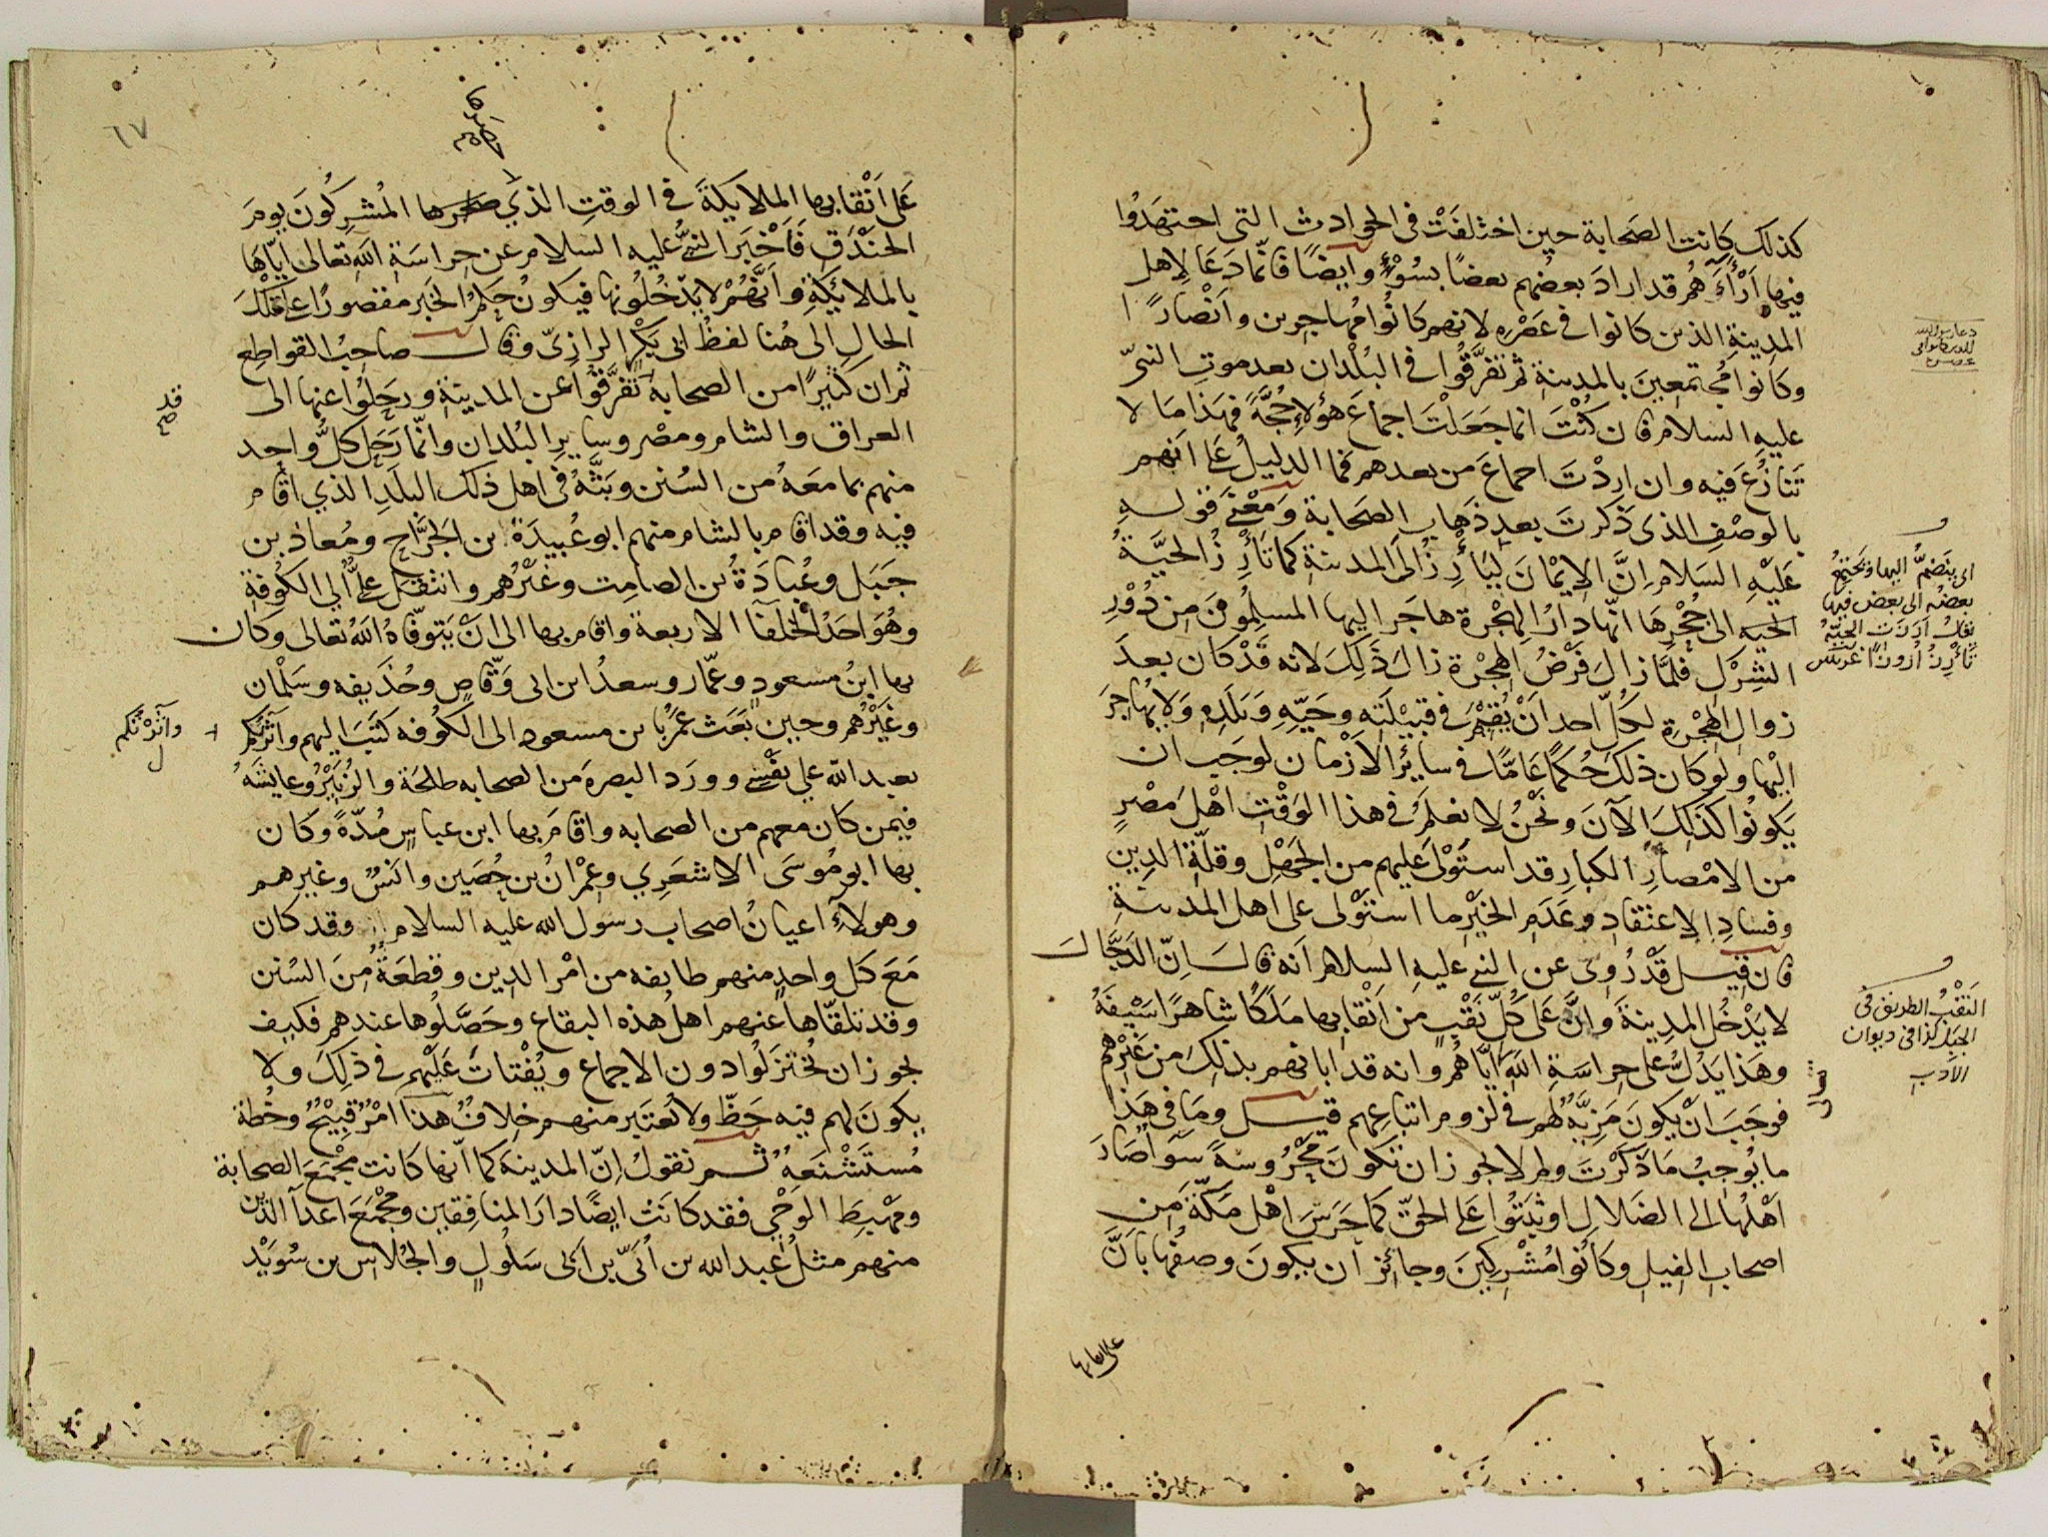 كذلك كانت الصَحابة حين اختلفَتْ فى الحوادث التى اجتهَدُوا
فيها اَرْأءَهُم قد اراد بعضُهم بعضًا بسُوْءٍ وايضًا فانّما دَعَا لاهل
المدينةِ الذين كانوا فى عَصْرِه لانهم كانُوا مُهاجرين واَنْصارًا
وكانوا مُجتمعِينَ بالمدينة ثم تفرَّقُوا فى البُلْدان بعد موتِ النبىّ
عليه السلام فان كُنْتَ انما جَعَلْتَ اجماعَ هؤلاءِ حُجَّةً فهذا مَا لا
تَنازُعَ فيه وان اردْتَ اجماعَ من بعدهم فما الدليلُ عَلى اَنهم
بالوصْفِ الذى ذَكرتَ بعد ذَهابِ الصَحابة وَمَعْنَى قولِهِ
عَلَيْهِ السَلام اِنَّ الاِيْمانَ لَيَأْرِزُ اِلَى المدينةِ كما تَأْرِزُ الحَيَّةُ
الى جُحْرِهَا انّها دارُ الهِجْرة هاجَر اليها المسلِمُونَ مِن دُوْرِ
الشِرْك فلمَّا زالَ فَرْضُ الهِجْرة زالَ ذَلِكَ لانه قَدْ كان بعدَ
زوال الهِجْرةِ لكُلّ احد اَنْ يُقيْمَ فى قبيْلَتِه وحَيّهِ وَبَلَدِهِ وَلا يُهاجِرَ
اليْها ولو كان ذلكَ حُكمًا عَامًّا فى سائِر الاَزْمان لوجَب ان
يَكونُوا كذلِكَ الآنَ ونَحْنُ لا نعلَمُ فى هذا الوَقْتِ اَهْلَ مصْرٍ
من الامْصارِ الكبارِ قد استَوْلَى عَليهم من الجَهْلِ وقلّةِ الدِين
وفسادِ الاعتقادِ وعَدَمِ الخَيْرِ ما استَوْلى على اهل المدينةِ
فان قيل قَدْ رُوِىَ عن النبى عليهِ السلام اَنه قال اِنّ الدَجَّال
لا يَدْخُل المدِينةَ وانَّ عَلى كُلِّ نَقْبٍ من اَنْقابها مَلَكًا شاهرًا سَيْفَهُ
وهَذا يَدُلُّ على حِراسَةِ اللهِ ايَّاهُم وانه قد اَبانهم بذلِكَ من غَيْرِهم
فوجَبَ اَنْ يكونَ مَزِيَّةٌ لهم فى لزوم اتباعِهم قيل ومَا فى هَذا
ما يُوجبُ ما ذكَرْتَ ولم لا يجوز ان تكونَ مَحْرُوسَةً سَوَاءٌ صَارَ
اَهْلُها الى الضَلال او ثبَتُوا عَلى الحَقّ كما حَرَسَ اهْل مَكّةَ مِن
اصحابِ الفِيلِ وكانُوا مُشْرِكِينَ وجائِز اَن يكونَ وصفُها باَنَّ
دعا رسول الله
للذين كانوا فى
عصره
اى ينضمُّ اليها ويجتمعُ
بعضُه الى بعض فيها
يقال اَرَزَت الحيّةُ
تأرِزُ اُروزًا
النَقْبُ الطريق فى
الجبَل كذا فى ديوان
الاَدب
على انقابها
٦٧
حَصَرها
صح
عَلى اَنْقابها الملايكَةَ فى الوقتِ الذي المُشرِكُونَ يومَ
الخنْدَقِ فَاَخْبَرَ النبىُّ عليه السلام عن حِراسَةِ اللهِ تعالى ايّاهَا
بالملائكَةِ واَنّهُمْ لا يدْخُلُونها فيكونُ حكمُ الخَبر مقصورًا على تلْكَ
الحالِ الى هُنا لفظُ ابى بَكْرٍ الرازِىّ وقال صاحبُ القواطِع
ثم ان كثيرًا من الصحابة تفرَّقوا عن المدينةِ ورحَلُوا عنها الى
العراق والشام ومصْر وساير البُلدانِ وانّما رَحَل كلُّ واحد
منهم بما مَعَهُ من السُنن وبَثَّهُ فى اهل ذلك البلَدِ الذي اقام
فيه وقد اقام بالشام منهم ابو عُبيدَةَ ابن الجَرَّاحِ ومُعاذ بن
جَبَل وعُبادَةُ بن الصامِت وغَيْرُهم وانتقَل علىٌّ الى الكُوفةِ
وهُوَ احَدُ الخُلَفآءِ الاربعة واقام بها الى اَنْ يَتوفّاهُ اللهُ تعالى وكان
بها ابنُ مسعودٍ وعمّار وسعدُ ابن ابى وَقّاصٍ وحُذَيفه وسَلْمان
وغَيْرُهم وحين بَعَث عُمَرُ بابن مسعود الى الكُوفه كتَبَ اليهم وآثرتُكم
بعبد الله على نفْسى ووَرَد البصرةَ من الصحابه طلحَة والزُبَيْرُ وعايشَهُ
فيمن كان معهم من الصحابه واقامَ بها ابن عباسٍ مُدّةً وكان
بها ابو مُوسَى الاشعَرِي وعِمْرانُ بن حُصَين واَنسٌ وغيرهم
وهولآءِ اعيانُ اصحاب رسول الله عليه السلام وقد كان
مَعَ كل واحدٍ منهم طايفه من امْر الدِين وقطعَةٌ مِنَ السُنن
وقد تلقّاها عنهم اهلُ هذه البقاع وحَصَّلُوها عندهم فكيف
يجوز ان تُختزلُوا دون الاجماع ويُفْتاتَ عَلَيْهم فى ذلِكَ ولا
يكونَ لهم فيه حَظّ ولا يُعتبَر منهم خِلافٌ هذا امْرٌ قبِيْحٌ وخُطة
مُستَشْنَعَهٌ ثم نقول اِنّ المدينهَ كما انّها كانت مَجْمَعَ الصحابة
ومَهْبِطَ الوَحْي فقد كانَت ايضًا دارَ المنافِقين ومجْمَعَ اَعدآءِ الدّين
منهم مثلُ عبد الله بن اُبَىّ بن اُبى سَلُولٍ والجُلاسِ بن سُوَيْد
قد
صح
وآثرْتُكم
ل